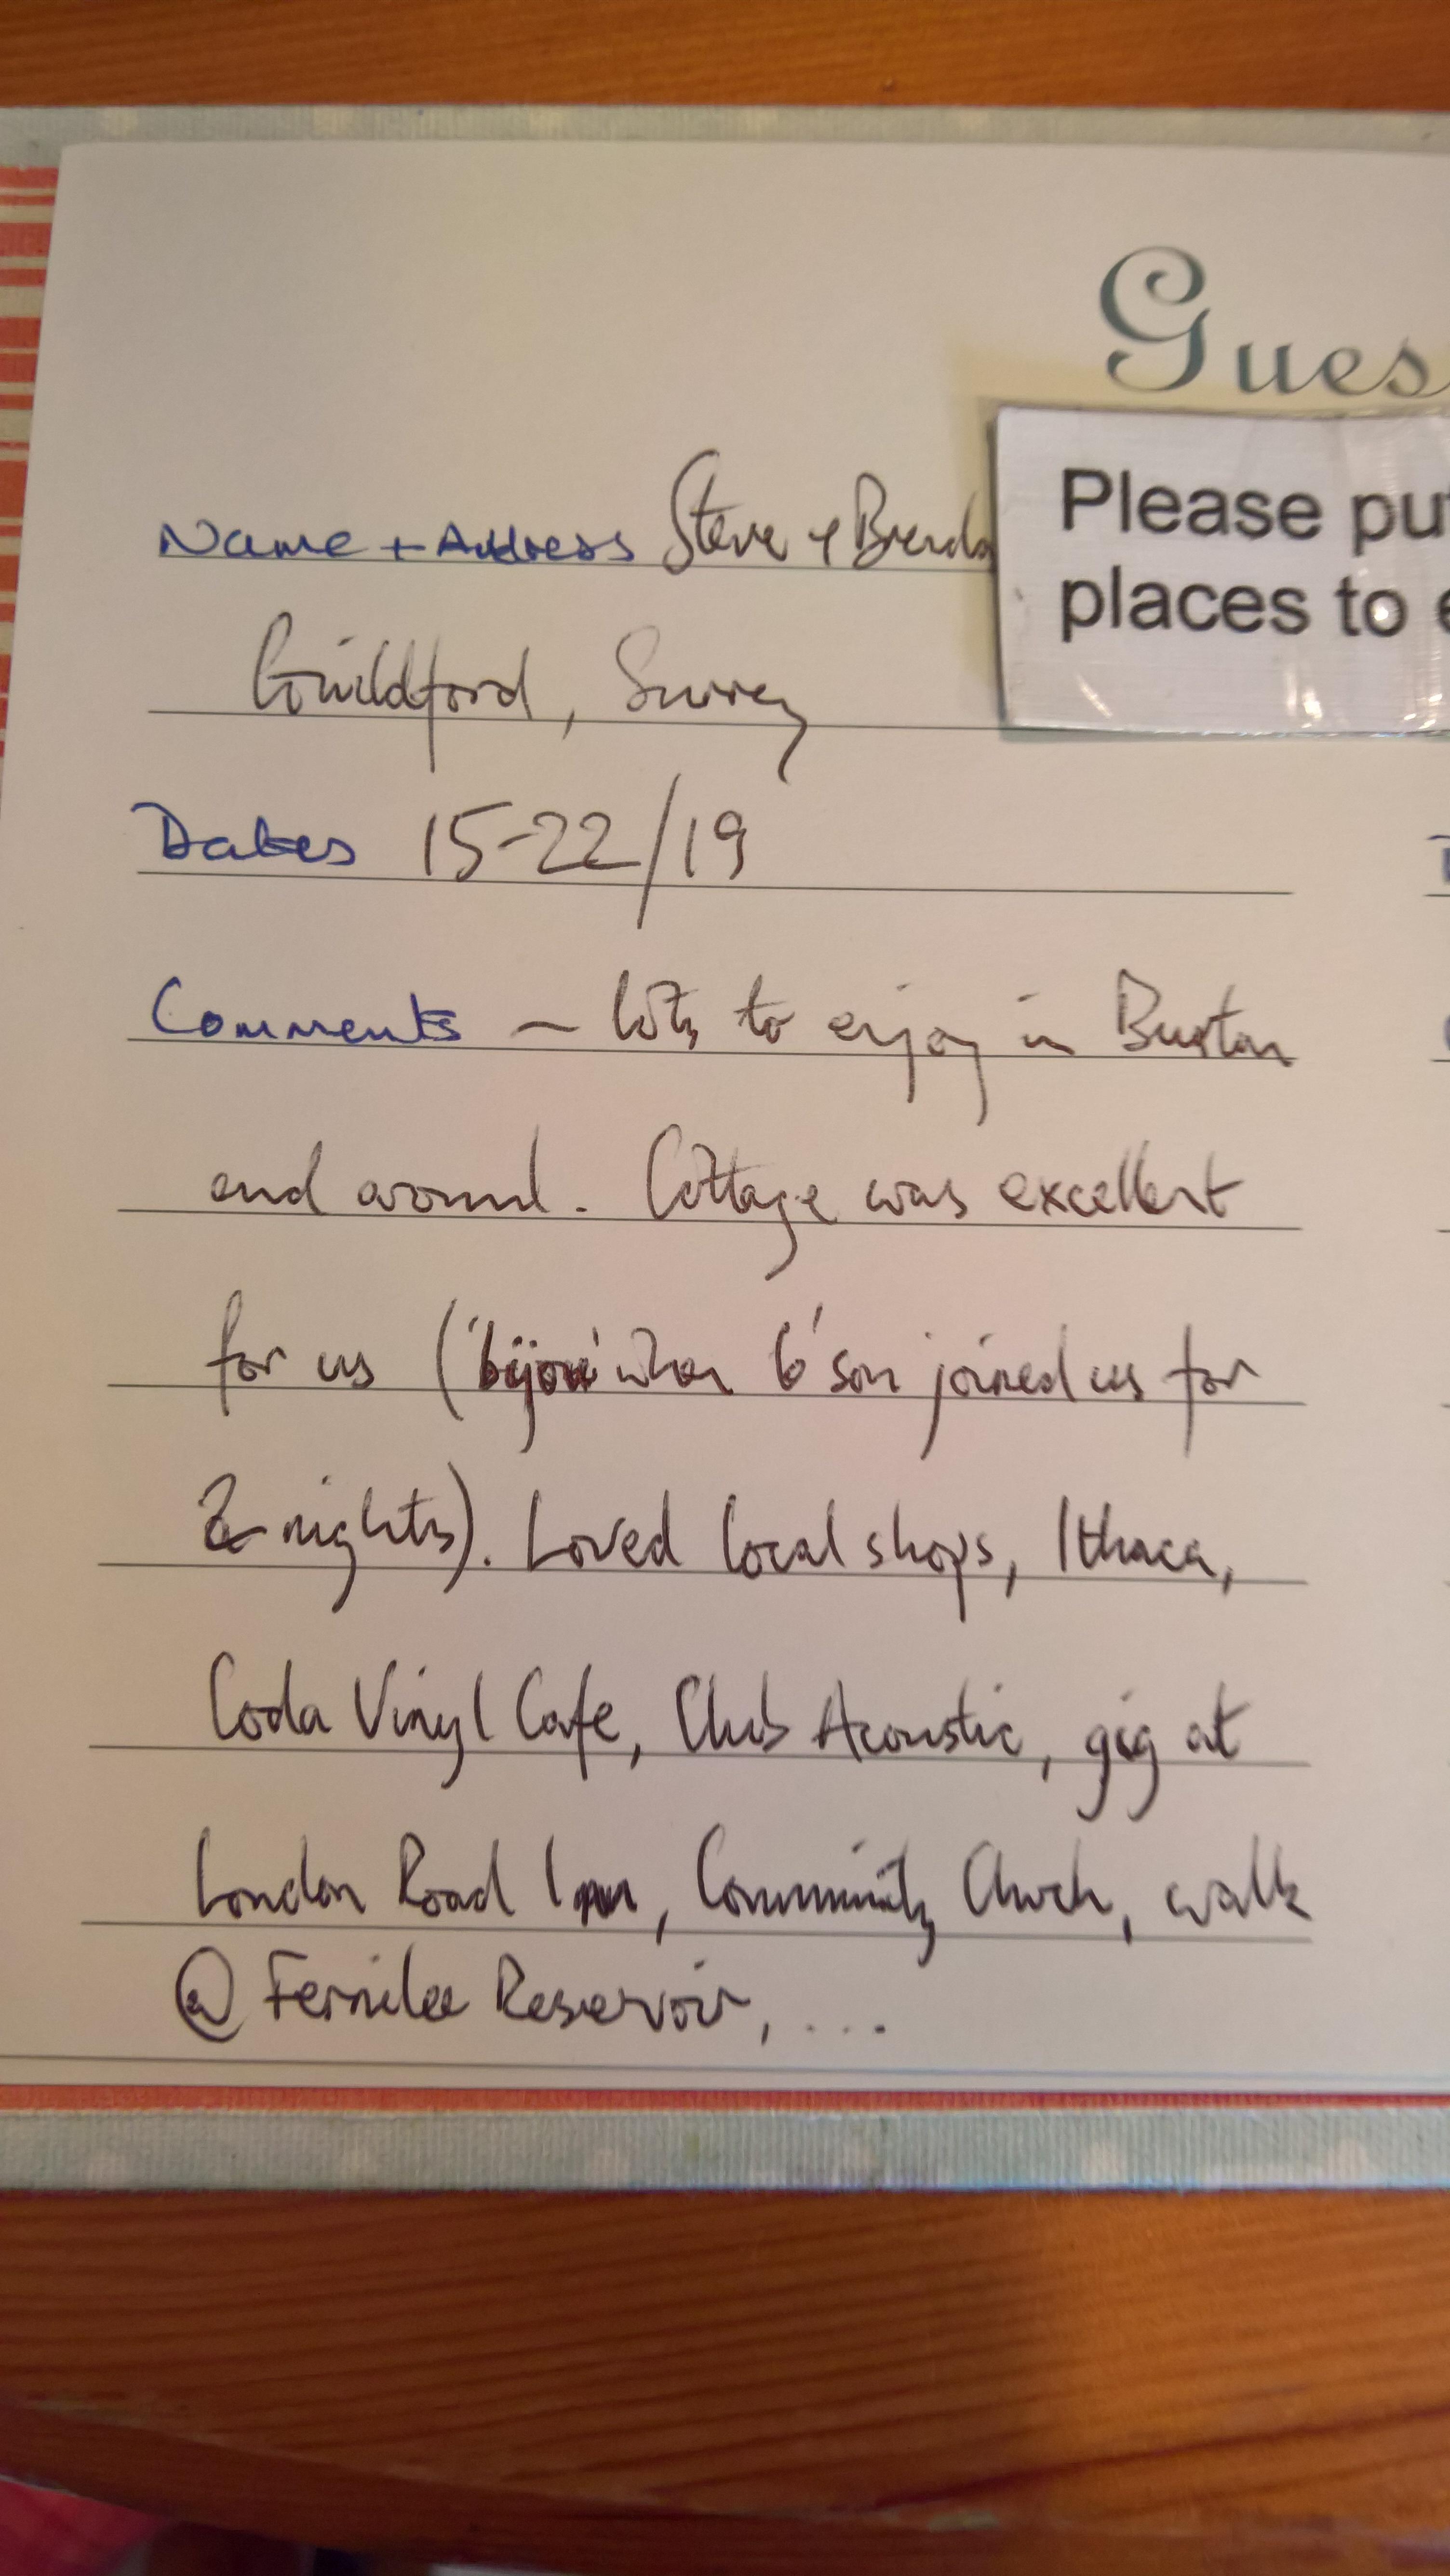 Gues
Please pu
places to e
Name + Address Steve & Brenda
Guildford, Surrey
Dates 15-22/19
Comments – lots to enjoy in Buxton
and around. Cottage was excellent
for us ('bijou' when 6' son joined us for
2 nights). Loved local shops, Ithaca,
Coda Vinyl Cafe, Club Acoustic, gig at
London Road Inn, Community Church, walk
@ Fernilee Reservoir, ....